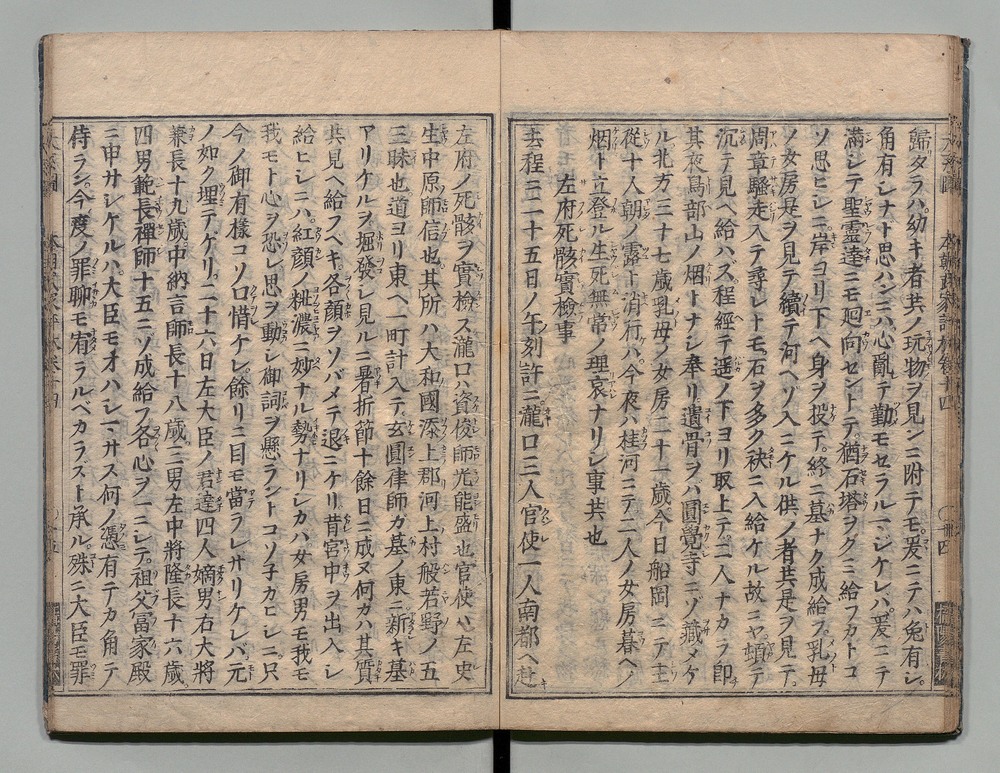 歸タラハ幼キ者共ノ玩物ヲ見ンニ附テモ爰ニテハ兎有シ
角有シナト思ハンニハ心亂テ勤モセラルマジケレハ爰ニテ
滿シテ聖靈達ニモ廻向セントテ猶石塔ヲクミ給フカトコ
ソ思ヒシニ岸ヨリ下ヘ身ヲ投テ終ニ墓ナク成給フ乳母
ノ女房是ヲ見テ續テ河ヘゾ入ニケル供ノ者共是ヲ見テ
周章騒走入テ尋レトモ石ヲ多ク袂ニ入給ケル故ニヤ頓テ
沉テ見ヘ給ハス程經テ遥ノ下ヨリ取上テ二人ナカラ即
其夜鳥部山ノ烟トナシ奉リ遺骨ヲハ圓覺寺ニゾ藏メケ
ル北方三十七歳乳母ノ女房二十一歳今日船岡ニテ主
從十人朝ノ露ト消行ハ今夜ハ桂河ニテ二人ノ女房暮ヘノ
烟ト立登ル生死無常ノ理哀ナリシ事共也
左府死骸實檢事
去程ニ二十五日ノ午刻許ニ瀧口三人官使一人南都ヘ赴
左府ノ死骸ヲ實檢ス瀧口ハ資俊師光能盛也官使ハ左史
生中原師信也其所ハ大和國添上郡河上村般若野ノ五
三昧也道ヨリ東ヘ一町計入テ玄圓律師カ墓ノ東ニ新キ墓
アリケルヲ堀發シ見ルニ暑折節十餘日ニ成ヌ何カハ其質
共見ヘ給フベキ各顔ヲソバメテ退ニケリ昔宮中ヲ出入シ
給ヒシニハ紅顔ノ粧濃ニ妙ナル勢ナリシカハ女房男モ我モ
我モト心ヲ恐シ思ヲ動シ御詞ヲ懸ラントコソ子カヒシニ只
今ノ御有様コソ口惜ケレ餘リニ目モ當ラレサリケレバ元
ノ如ク埋テケリ二十六日左大臣ノ君達四人嫡男右大將
兼長十九歳中納言師長十八歳三男左中將隆長十六歳
四男範長禪師十五ニソ成給フ各心ヲ一ニシテ祖父富家殿
ニ申サシケルハ大臣モオハシマサス何ノ憑有テカ角テ
侍ラン今度ノ罪聊モ宥ラルベカラスト承ル殊ニ大臣モ罪